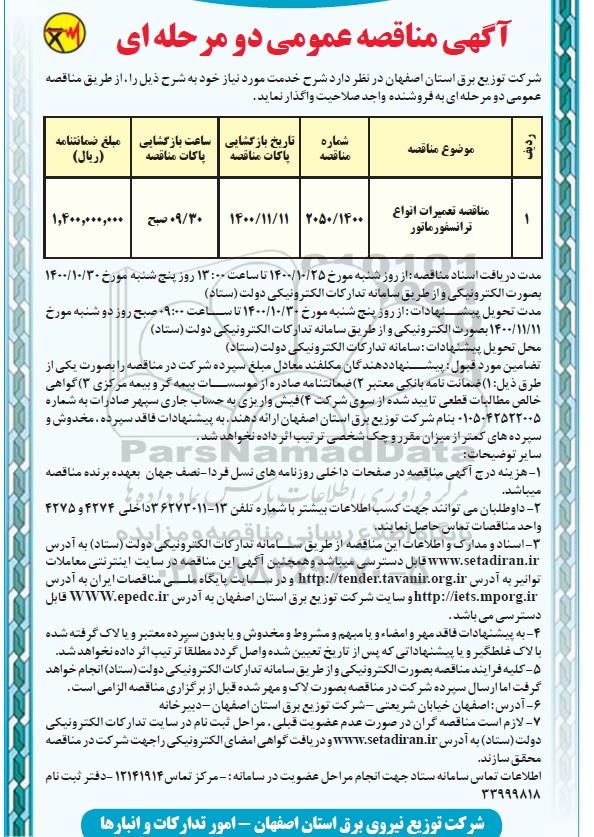 آگهی مناقصه عمومی دو مرحله ای
شرکت توزیع برق استان اصفهان در نظر دارد شرح خدمت مورد نیاز خود به شرح ذیل را، از طریق مناقصه
عمومی دو مرحله ای به فروشنده واجد صلاحیت واگذار نماید.
ردیف
موضوع مناقصه
شماره مناقصه
تاریخ بازگشایی پاکات مناقصه
ساعت بازگشایی پاکات مناقصه
مبلغ ضمانتنامه (ریال)
۱
مناقصه تعمیرات انواع ترانسفورماتور
۲۰۵۰/۱۴۰۰
۱۴۰۰/۱۱/۱۱
۰۹/۳۰ صبح
۱,۴۰۰,۰۰۰,۰۰۰
مدت دریافت اسناد مناقصه: از روز شنبه مورخ ۱۴۰۰/۱۰/۲۵ تا ساعت ۱۳:۰۰ روز پنج شنبه مورخ ۱۴۰۰/۱۰/۳۰
بصورت الکترونیکی و از طریق سامانه تدارکات الکترونیکی دولت (ستاد)
مدت تحویل پیشنهادات: از روز پنج شنبه مورخ ۱۴۰۰/۱۰/۳۰ تا ساعت ۰۹:۰۰ صبح روز دو شنبه مورخ
۱۴۰۰/۱۱/۱۱ بصورت الکترونیکی و از طریق سامانه تدارکات الکترونیکی دولت (ستاد)
محل تحویل پیشنهادات: سامانه تدارکات الکترونیکی دولت (ستاد)
تضامین مورد قبول: پیشنهاددهندگان مکلفند معادل مبلغ سپرده شرکت در مناقصه را بصورت یکی از
طرق ذیل: ۱)ضمانت نامه بانکی معتبر ۲)ضمانتنامه صادره از موسسات بیمه گر و بیمه مرکزی ۳)گواهی
خالص مطالبات قطعی تایید شده از سوی شرکت ۴)فیش واریزی به حساب جاری سپهر صادرات به شماره
۰۱۰۵۰۴۲۵۲۲۰۰۵ بنام شرکت توزیع برق استان اصفهان ارائه دهند. به پیشنهادات فاقد سپرده، مخدوش و
سپرده های کمتر از میزان مقرر و چک شخصی ترتیب اثر داده نخواهد شد.
سایر توضیحات:
۱-هزینه درج آگهی مناقصه در صفحات داخلی روزنامه های نسل فردا-نصف جهان بعهده برنده مناقصه
میباشد.
۲-داوطلبان می توانند جهت کسب اطلاعات بیشتر با شماره تلفن ۱۳-۳۶۲۷۳۰۱۱ داخلی ۴۲۷۴ و ۴۲۷۵
واحد مناقصات تماس حاصل نمایند.
۳-اسناد و مدارک و اطلاعات این مناقصه از طریق سامانه تدارکات الکترونیکی دولت (ستاد) به آدرس
www.setadiran.ir قابل دسترسی میباشد و همچنین آگهی این مناقصه در سایت اینترنتی معاملات
توانیر به آدرس http://tender.tavanir.org.ir و در سایت پایگاه ملی مناقصات ایران به آدرس
http://iets.mporg.ir و سایت شرکت توزیع برق استان اصفهان به آدرس WWW.epedc.ir قابل
دسترسی می باشد.
۴-به پیشنهادات فاقد مهر و امضاء و یا مبهم و مشروط و مخدوش و یا بدون سپرده معتبر و یا لاک گرفته شده
با لاک غلطگیر و یا پیشنهاداتی که پس از تاریخ تعیین شده واصل گردد مطلقا ترتیب اثر داده نخواهد شد.
۵-کلیه فرایند مناقصه بصورت الکترونیکی و از طریق سامانه تدارکات الکترونیکی دولت (ستاد) انجام خواهد
گرفت اما ارسال سپرده شرکت در مناقصه بصورت لاک و مهر شده قبل از برگزاری مناقصه الزامی است.
۶-آدرس: اصفهان خیابان شریعتی –شرکت توزیع برق استان اصفهان –دبیرخانه
۷-لازم است مناقصه گران در صورت عدم عضویت قبلی، مراحل ثبت نام در سایت تدارکات الکترونیکی
دولت (ستاد) به آدرس www.setadiran.ir و دریافت گواهی امضای الکترونیکی را جهت شرکت در مناقصه
محقق سازند.
اطلاعات تماس سامانه ستاد جهت انجام مراحل عضویت در سامانه: -مرکز تماس ۱۲۱۴۱۹۱۴-دفتر ثبت نام
۳۳۹۹۹۸۱۸
شرکت توزیع نیروی برق استان اصفهان – امور تدارکات و انبارها
ParsNamadData